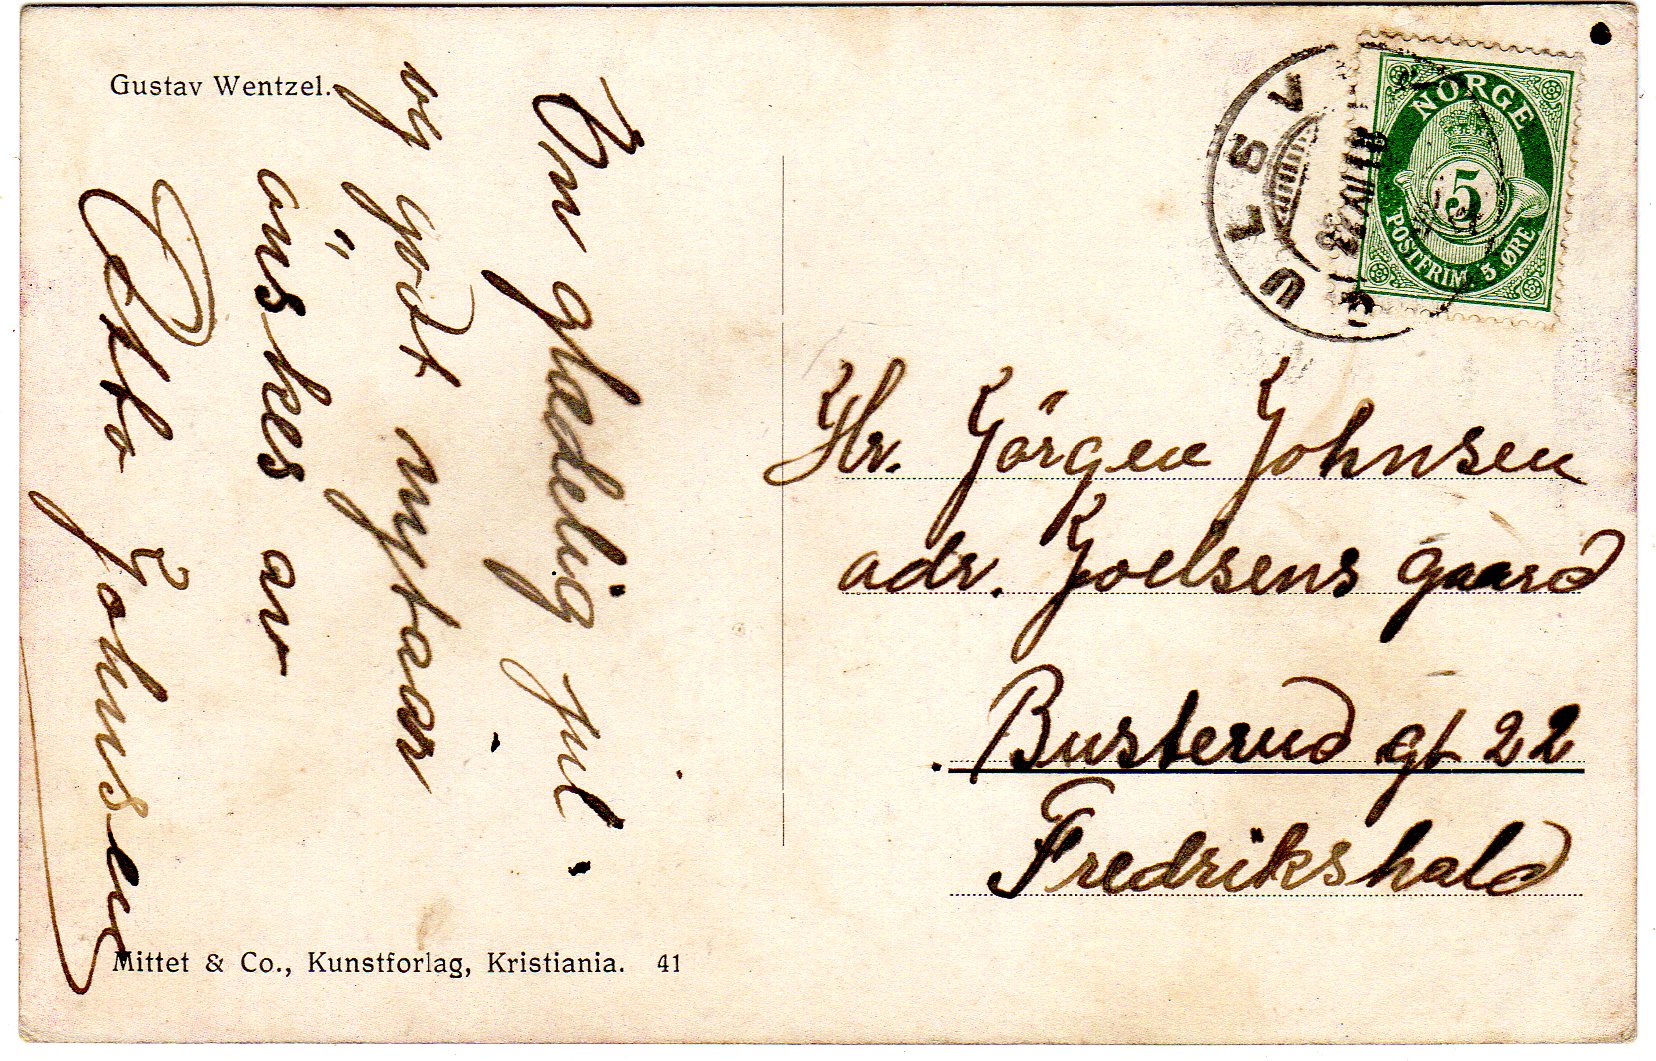 Gustav Wentzel.
En glædelig jul.
og godt nytaar
önskes av
Otto Johnsen
Mittet & Co., Kunstforlag, Kristiania. 41
NORGE
5
POSTFRIM. 5 ØRE
Hr. Jörgen Johnsen
adr. Joelsens gaard
Busterud gt 22
Fredrikshald